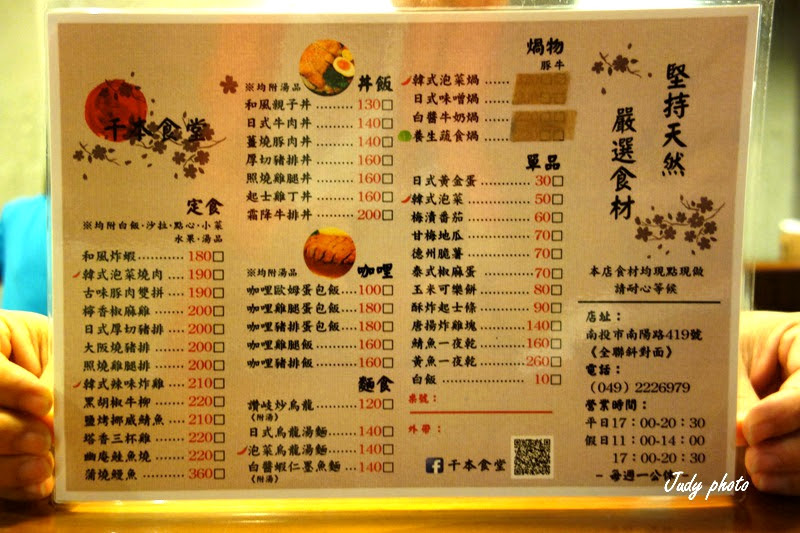 千本食堂
定食
※均附白飯·沙拉·點心·小菜
水果·湯品
和風炸蝦 180□
韓式泡菜燒肉 190□
古味豚肉雙拼 190□
檸香椒麻雞 200□
日式厚切豬排 200□
大阪燒豬排 200□
照燒雞腿排 200□
韓式辣味炸雞 210□
黑胡椒牛柳 220□
鹽烤挪威鯖魚 210□
塔香三杯雞 220□
幽庵鮭魚燒 220□
蒲燒鰻魚 360□
※均附湯品 丼飯
和風親子丼 130□
日式牛肉丼 140□
薑燒豚肉丼 140□
厚切豬排丼 160□
照燒雞腿丼 160□
起士雞丁丼 160□
霜降牛排丼 200□
※均附湯品 咖哩
咖哩歐姆蛋包飯 100□
咖哩雞腿蛋包飯 180□
咖哩豬排蛋包飯 180□
咖哩雞腿飯 160□
咖哩豬排飯 160□
麵食
讚岐炒烏龍 120□
(附湯)
日式烏龍湯麵 140□
泡菜烏龍湯麵 140□
白醬蝦仁墨魚麵 140□
(附湯)
鍋物
豚牛
韓式泡菜鍋
日式味噌鍋
白醬牛奶鍋
養生蔬食鍋
單品
日式黃金蛋 30□
韓式泡菜 50□
梅漬番茄 60□
甘梅地瓜 70□
德州脆薯 70□
泰式椒麻蛋 70□
玉米可樂餅 80□
酥炸起士條 90□
唐揚炸雞塊 140□
鯖魚一夜乾 160□
黃魚一夜乾 260□
白飯 10□
桌號：
外帶：
千本食堂
堅持天然
嚴選食材
本店食材均現點現做
請耐心等候
店址：
南投市南陽路419號
《全聯斜對面》
電話：
(049) 2226979
營業時間：
平日17：00-20：30
假日11：00-14：00
17：00-20：30
- 每週一公休
Judy photo